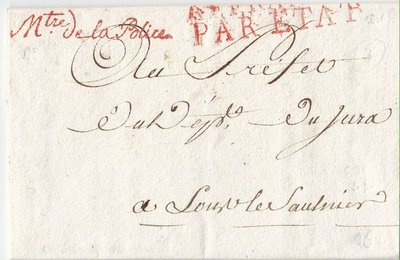 Mtre de la Police
PAR ETAT
Au Préfet
du Dépt. du Jura
a Lons le Saulnier